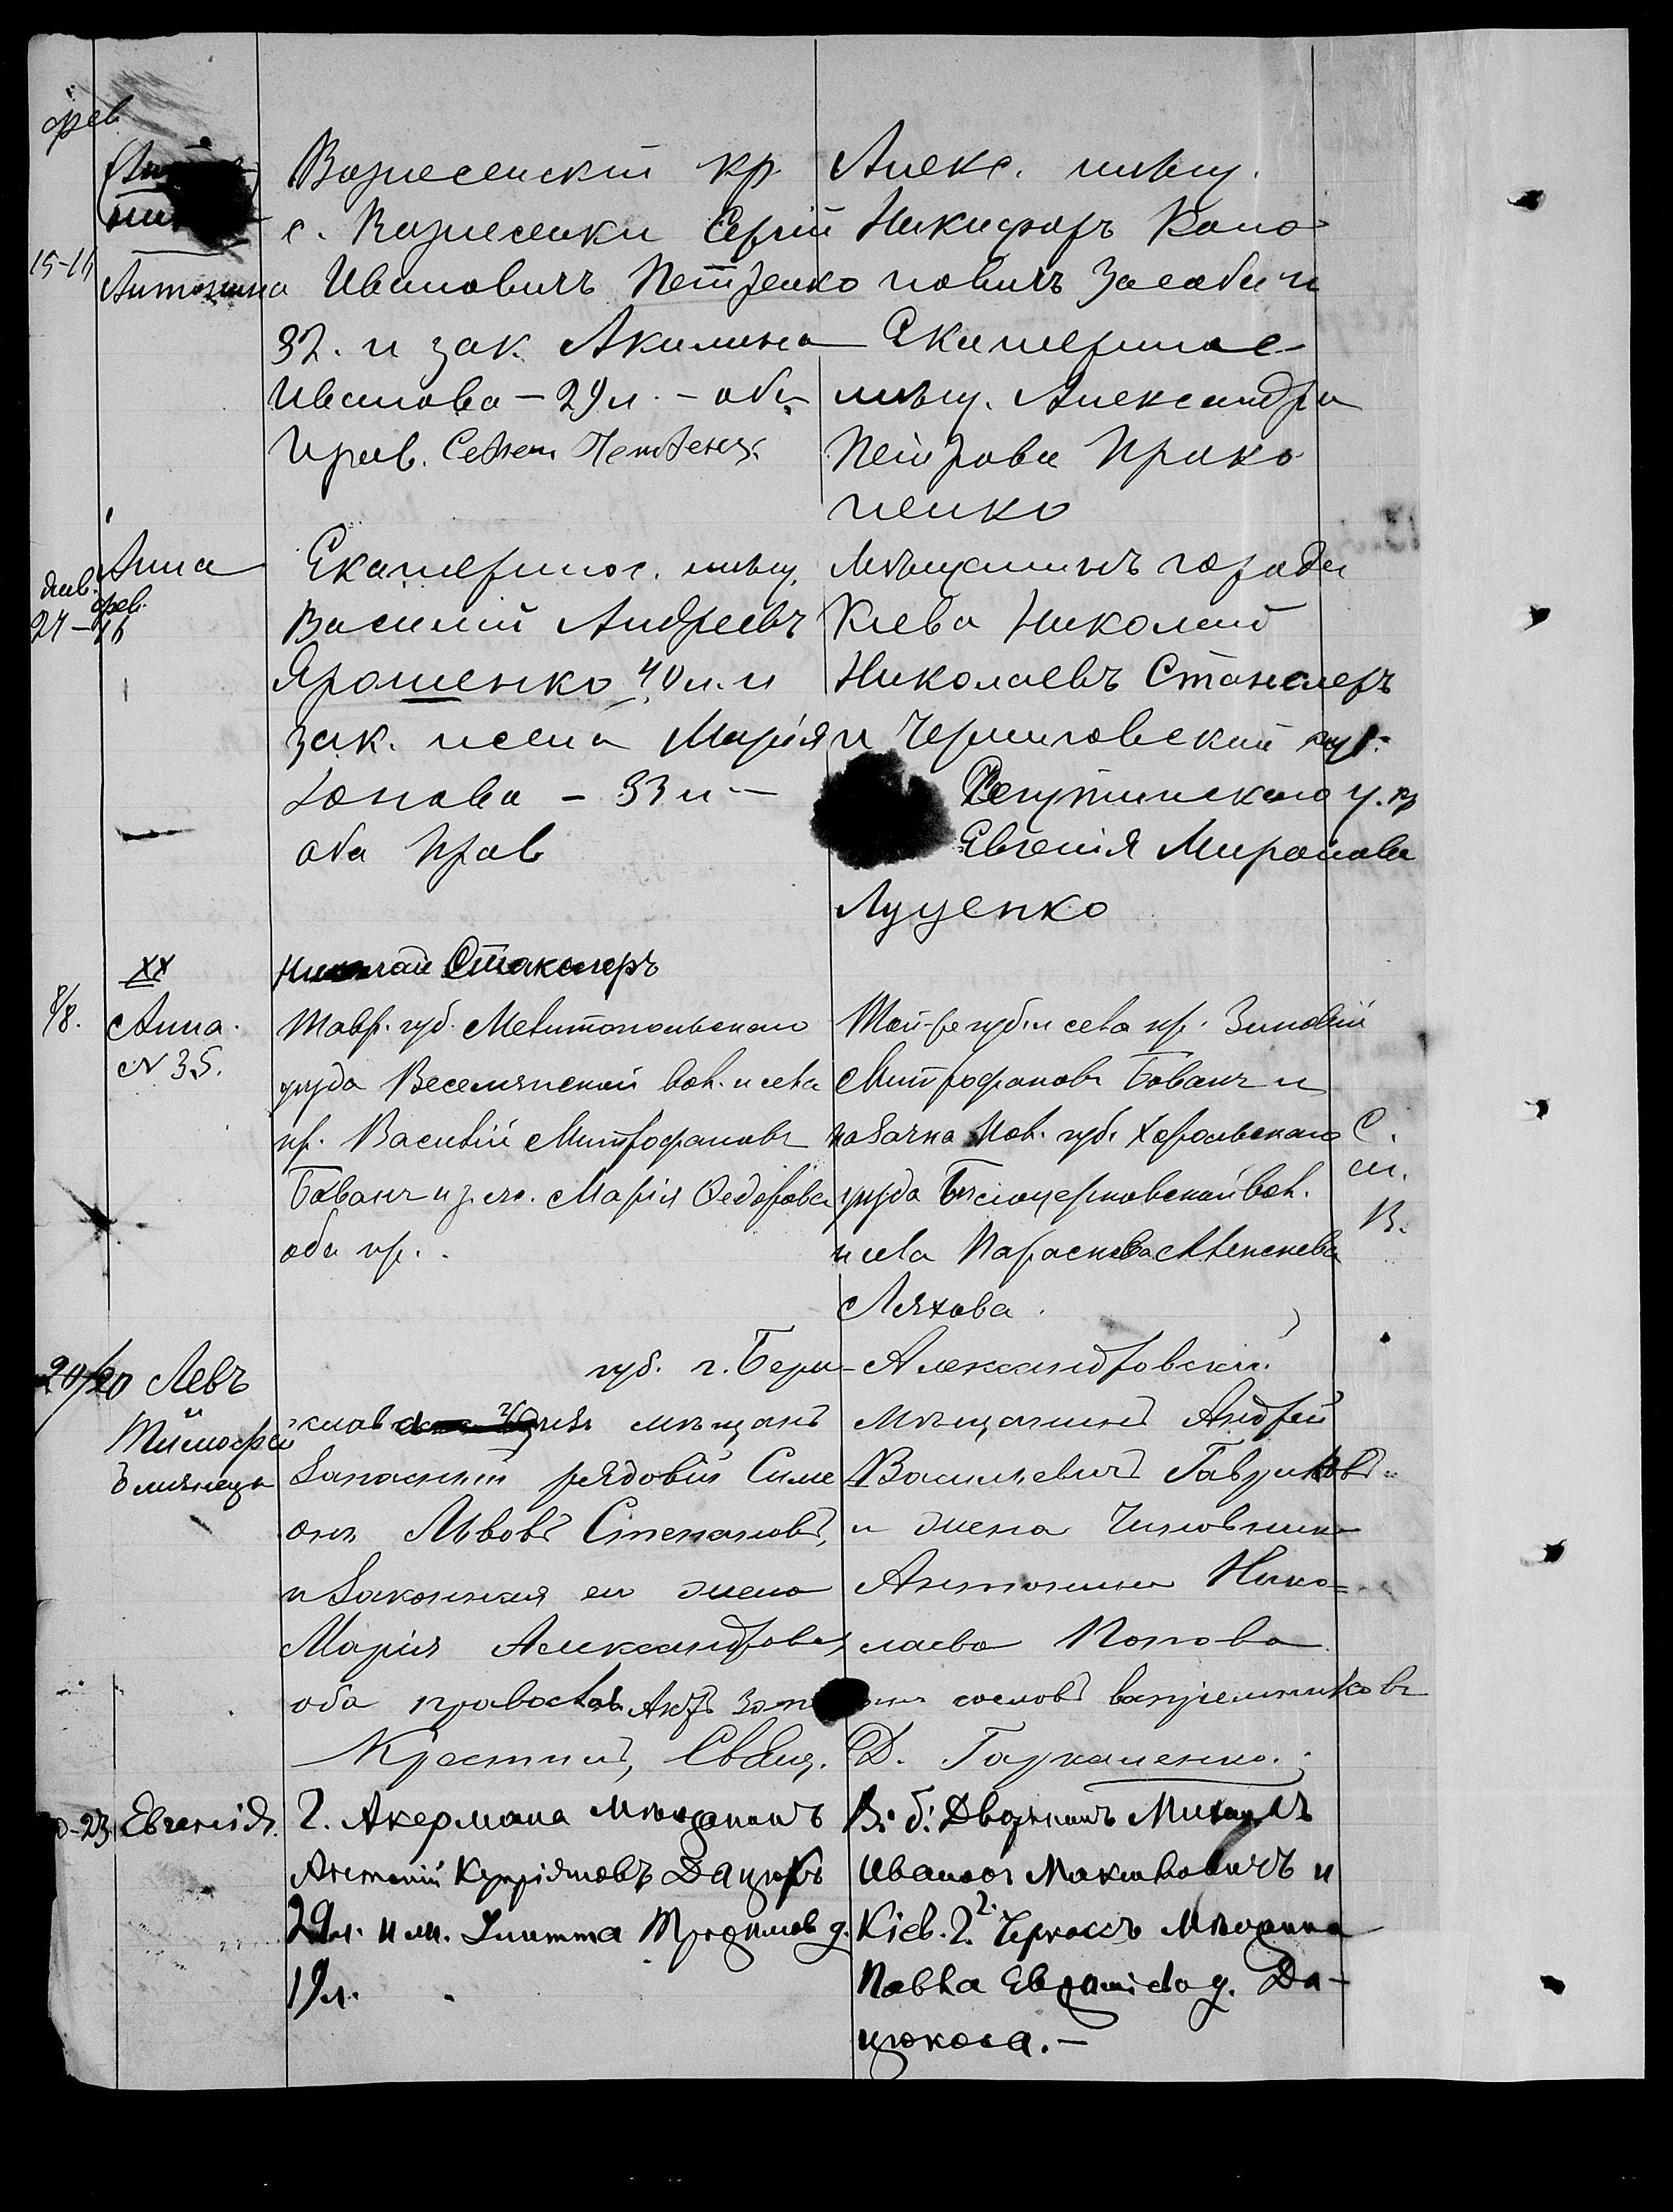 фев.
15-16
Антонина
Вознесенский кр.
с. Вознесенки Сергій
Ивановичъ Петренко
32. и зак. Акилина
Иванова - 29 л. - оба
прав.
Алекс. мѣщ.
Никифоръ Коно-
новичъ Засоба и
Екатеринос
мѣщ. Александра
Петрова Проко
пенко
Янв. фев.
24 - 16
Анна
Екатеринос. мѣщ.
Василій Андреевъ
Ярошенко 40 л. и
зак. жена Марія
Іонова - 33 л -
оба Прав
Мѣщанинъ города
Кіева Николай
Николаевъ
и Черниговской губ.
у. кр
Евгенія Миронова
Луценко
XX
Николай
8/8.
Анна.
№ 35.
Тавр. губ. Мелитопольскаго
уѣзда Веселянской вол. и села
кр. Василій Митрофановъ
Бованъ и з. ж. Марія Ѳедорова
оба пр.
Той-же губ. и села кр. Зиновій
Митрофановъ Бованъ и
казачка Пол. губ. Хорольскаго
уѣзда Бѣлоцерковской вол.
и села Параскева Алексѣева
Ляхова.
С.
м.
В.
20/20
Левъ
Тимофей
губ. г. Бери-
слав мѣщанъ
Запасный рядовой Симе
онъ Львовъ Степановъ,
и Законная его жена
Марія Александрова
оба православ.
Александровскій
мѣщанинъ Андрей
Васильевичъ Гавриковъ
и жена Чиновника
Антонина Нико=
лаева Попова
Крестилъ, Свящ. Д. Гаркаленко.
-23
Евгенія.
Г. Акермана Мѣщанинъ
Антоній Купріяновъ Дацюкъ
29 л. и ж. Улитта Трофимов д.
19 л.
В. б. Дворянинъ Михаилъ
Ивановъ Максимовичъ и
Кіев. г. г. Черкасъ Мѣщанка
Павла д. Да-
цюкова. -